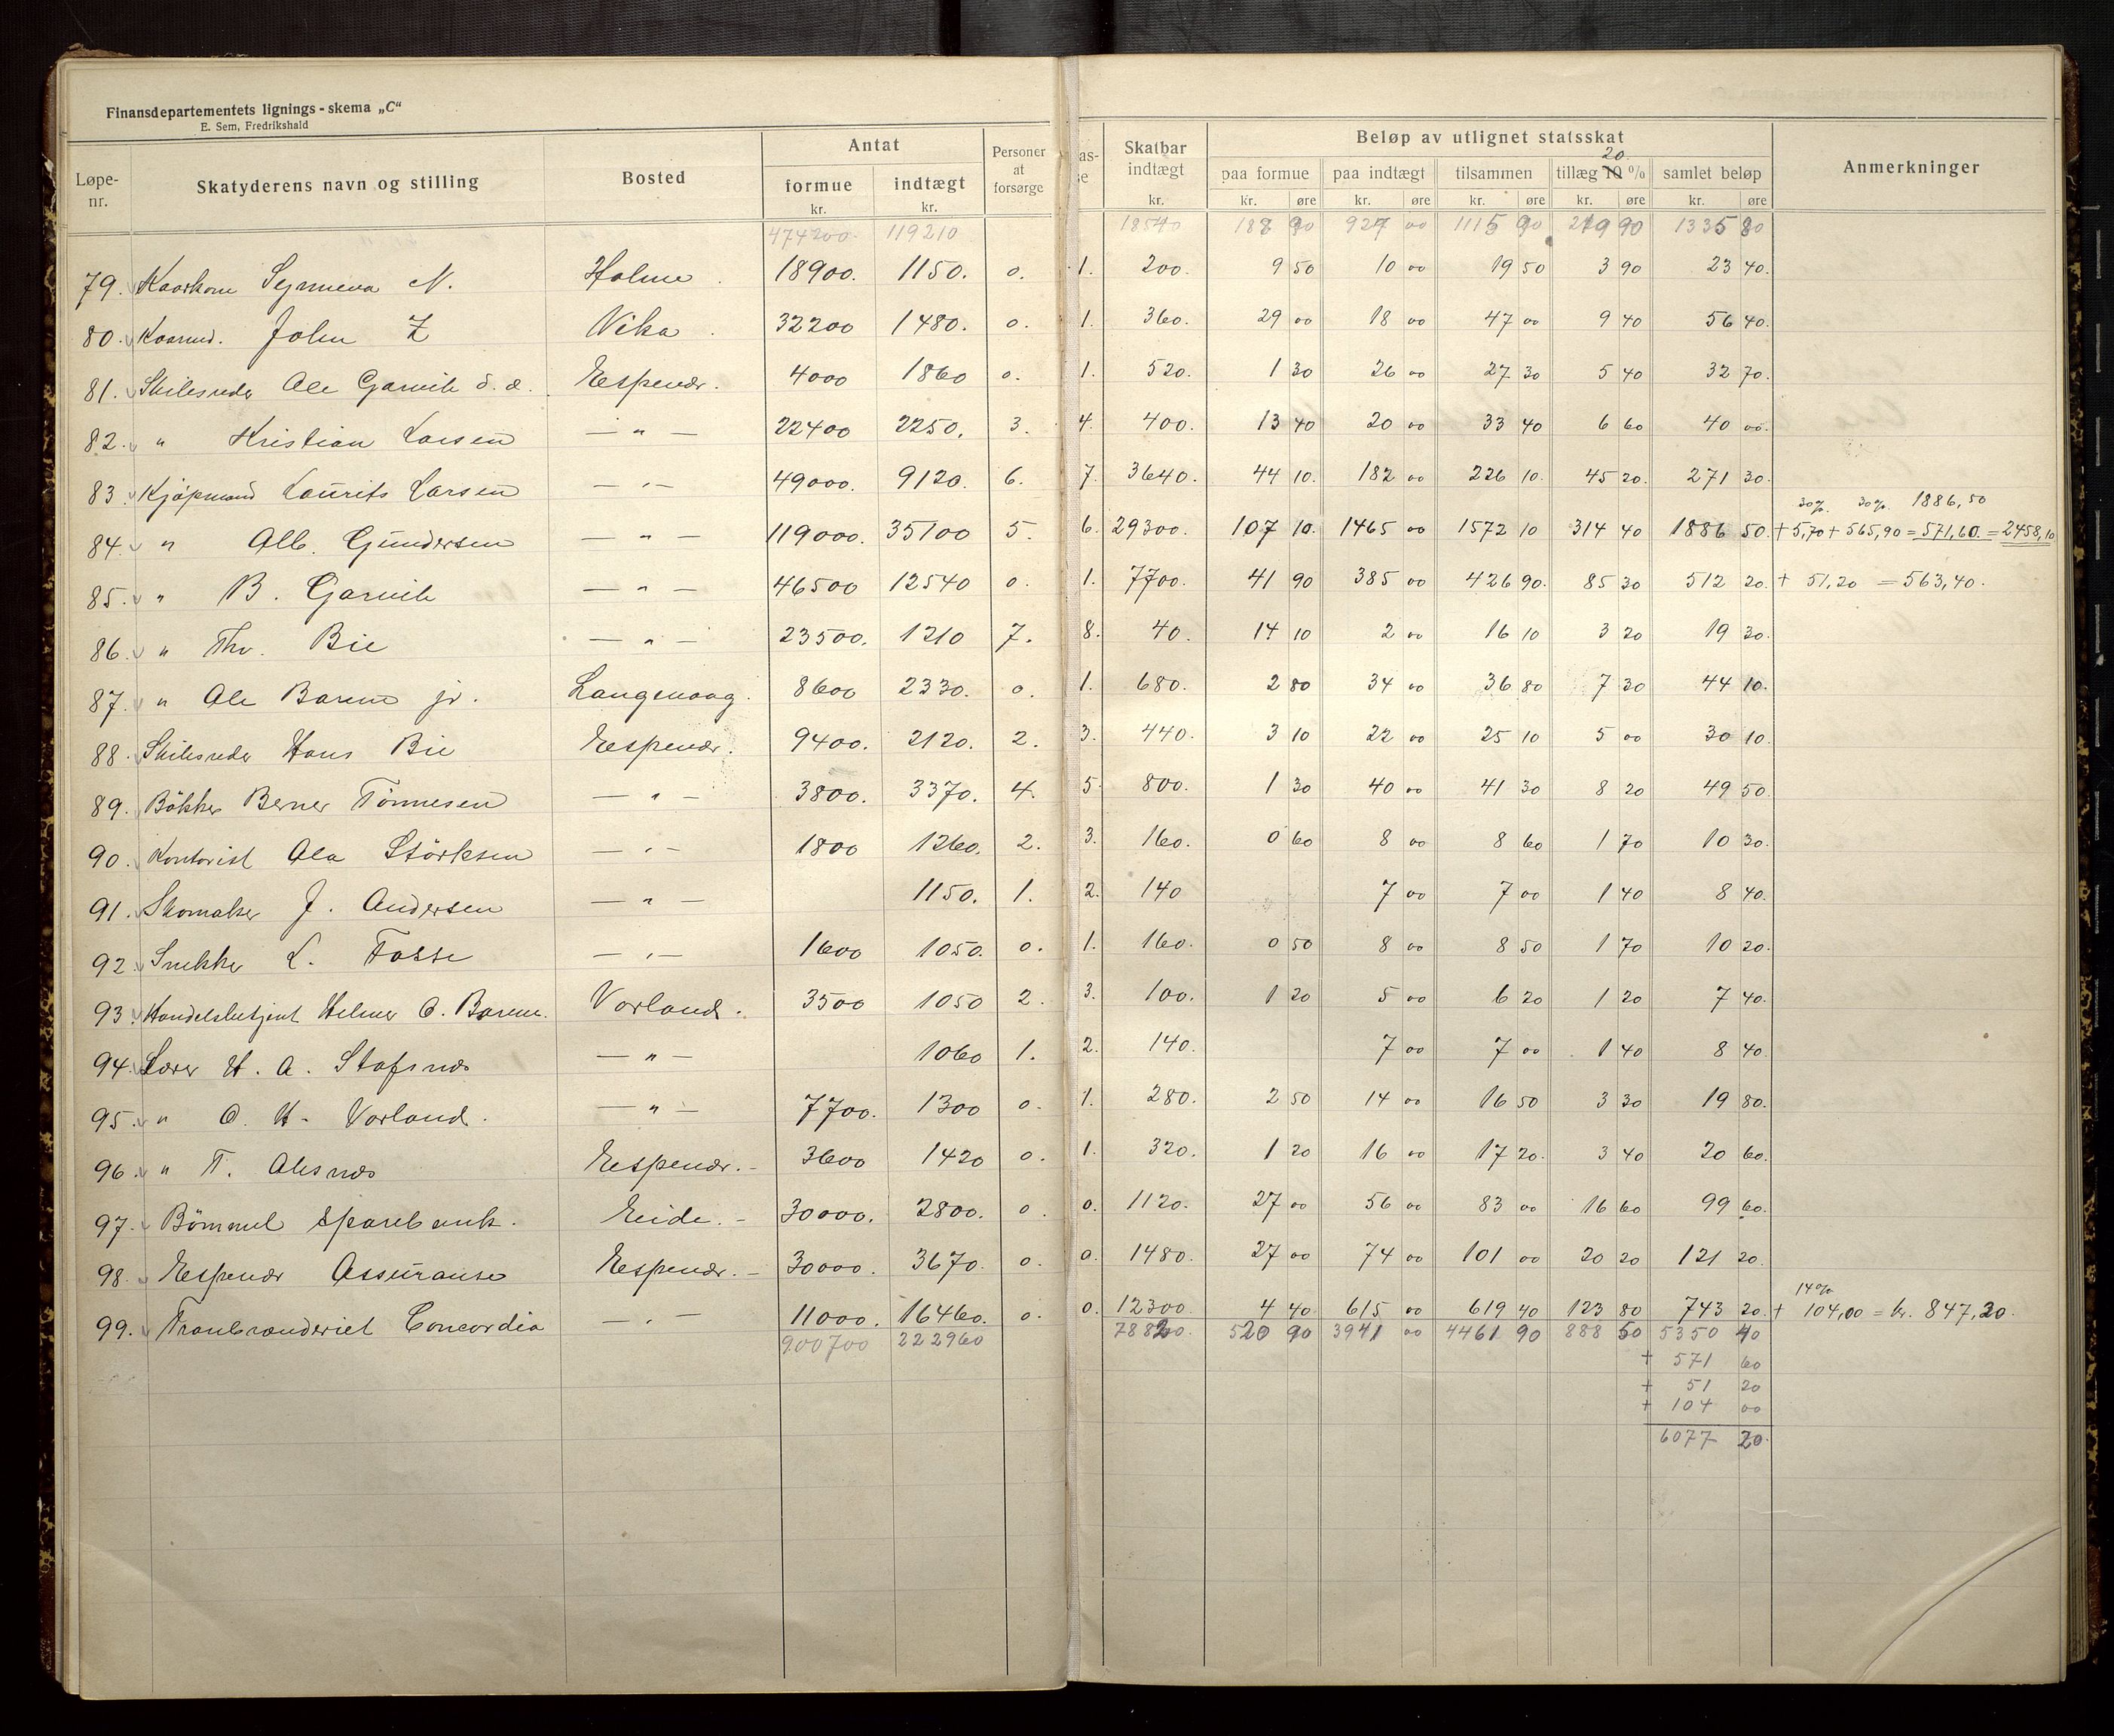 Finansdepartementets lignings-skema „C“
E. Sem, Fredrikshald
Løpe-nr. Skatyderens navn og stilling Bosted Antat formue kr. indtægt kr. Personer at forsørge as-se Skatbar indtægt kr. Beløp av utlignet statsskat paa formue kr. øre paa indtægt kr. øre tilsammen kr. øre tillæg 10 20. % kr. øre samlet beløp kr. øre Anmerkninger
474200. 119210 18540 188 90 927 00 1115 90 219 90 1335 80
79. Synneva N. Holme. 18900. 1150. 0. 1. 200. 9 50 10 00 19 50 3 90 23 40.
80. John Z Vika. 32200 1480. 0. 1. 360. 29 00 18 00 47 00 9 40 56 40.
81. Skibsreder Ole Garvik s. æ. Espevær. 4000 1860 0. 1. 520. 1 30 26 00 27 30 5 40 32 70.
82. " Kristian Larsen — " — 22400 2250. 3. 4. 400. 13 40 20 00 33 40 6 60 40 00.
83. Kjøpmand Laurits Larsen — " — 49000. 9120. 6. 7. 3640. 44 10. 182 00 226 10. 45 20. 271 30.
30% 30% 1886,50
84. " Alb. Gundersen — " — 119000. 35100 5. 6. 29300. 107 10. 1465 00 1572 10 314 40 1886 50. + 5,70 + 565,90 = 571,60. = 2458,10
85. " B. Garvik — " — 46500 12540 0. 1. 7700. 41 90 385 00 426 90. 85 30 512 20. + 51,20 = 563,40.
86. " Thv. Bie — " — 23500. 1210 7. 8. 40. 14 10 2 00 16 10 3 20 19 30.
87. " Ole Barene jr. Langevaag. 8600 2330. 0. 1. 680. 2 80 34 00 36 80 7 30 44 10.
88. Skibsreder Hans Bie Espevær. 9400. 2120. 2. 3. 440. 3 10 22 00 25 10 5 00 30 10.
89. Bökker Berner Tönnesen — " — 3800. 3370. 4. 5 800. 1 30 40 00 41 30 8 20 49 50.
90. Kontorist Ola Störksen — " — 1800 1260. 2. 3. 160. 0 60 8 00 8 60 1 70 10 30.
91. Skomaker J. Andersen — " — 1150. 1. 2. 140 7 00 7 00 1 40 8 40.
92. Snekker L. Fosse — " — 1600 1050. 0. 1. 160. 0 50 8 00 8 50 1 70 10 20.
93. Handelsbetjent Helmer O. Barene. Vorland. 3500 1050 2. 3. 100. 1 20 5 00 6 20 1 20 7 40.
94. Lærer H. A. Stafsnes — " — 1060 1. 2. 140. 7 00 7 00 1 40 8 40.
95. " O. H. Vorland. — " — 7700. 1300 0. 1. 280. 2 50 14 00 16 50 3 30 19 80.
96. " T. Alsnes Espevær. 3600 1420 0. 1. 320. 1 20 16 00 17 20. 3 40 20 60.
97. Bömmel Sparebank. Eide. 30000. 2800. 0. 0. 1120. 27 00 56 00 83 00 16 60 99 60.
98. Espevær Assuranse Espevær. 30000. 3670. 0. 0. 1480. 27 00 74 00 101 00 20 20 121 20.
14%
99. Tranbrænderiet Concordia — " — 11000. 16460. 0. 0. 12300. 4 40. 615 00 619 40 123 80 743 20. + 104,00 = kr. 847,20.
900700 222960 78820. 520 90 3941 00 4461 90 888 50 5350 40
+ 571 60
+ 51 20
+ 104 00
6077 20.